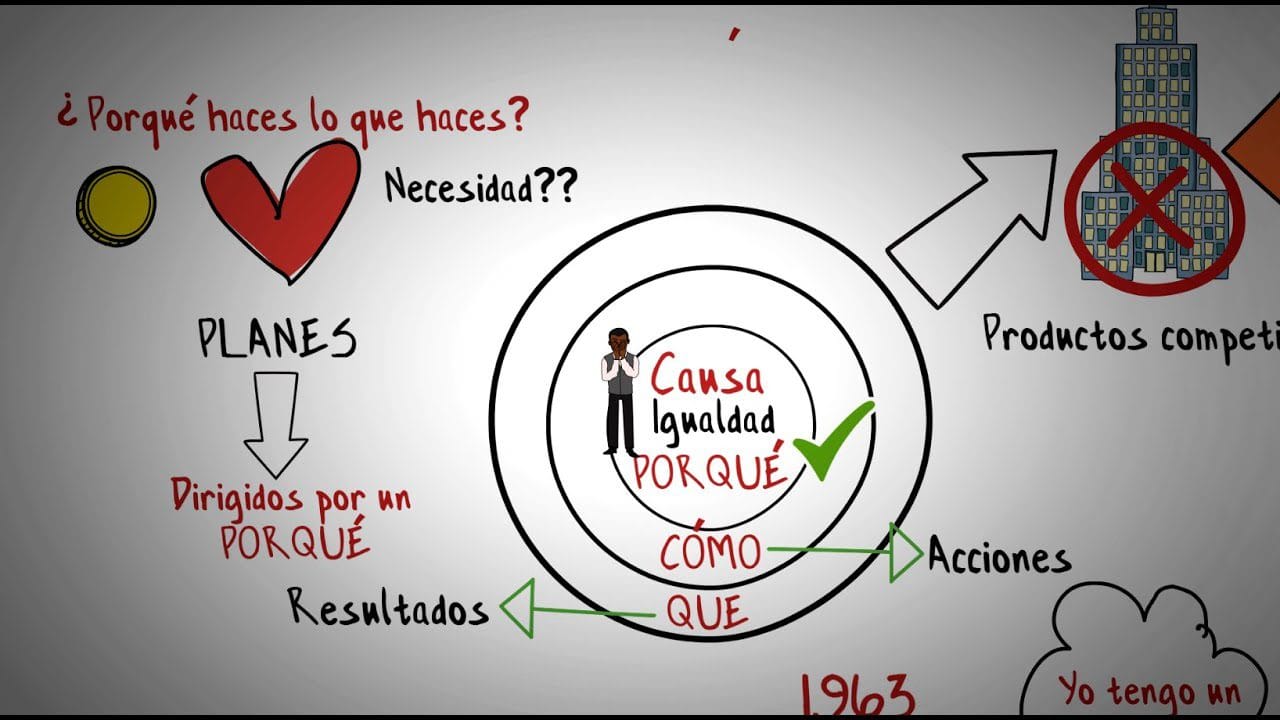 ¿Porqué haces lo que haces?
Necesidad??
PLANES
Dirigidos por un
PORQUÉ
Causa
Igualdad
PORQUÉ
CÓMO
Acciones
QUE
Resultados
Productos competi
1963
Yo tengo un